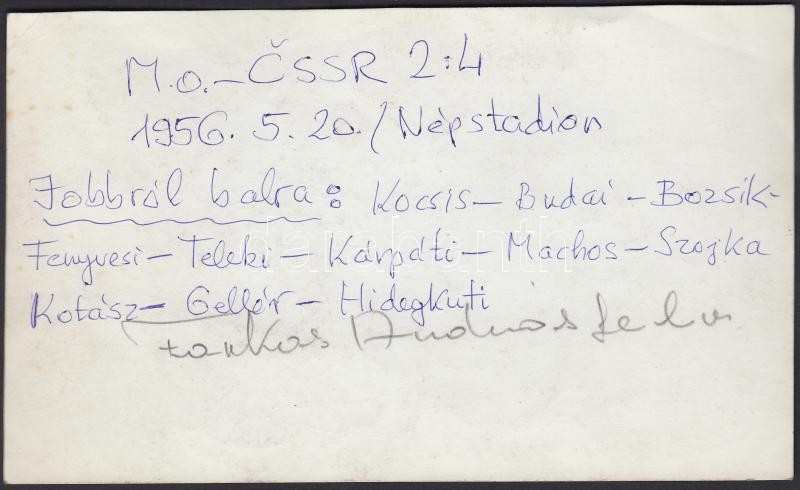 M.o.– ČSSR 2:4
1956. 5. 20. / Népstadion
Jobbról balra: Kocsis – Budai – Bozsik-
Fenyvesi – Teleki – Kárpáti – Machos – Szojka
Kotász – Gellér – Hidegkuti
Farkas András felv
darabanth